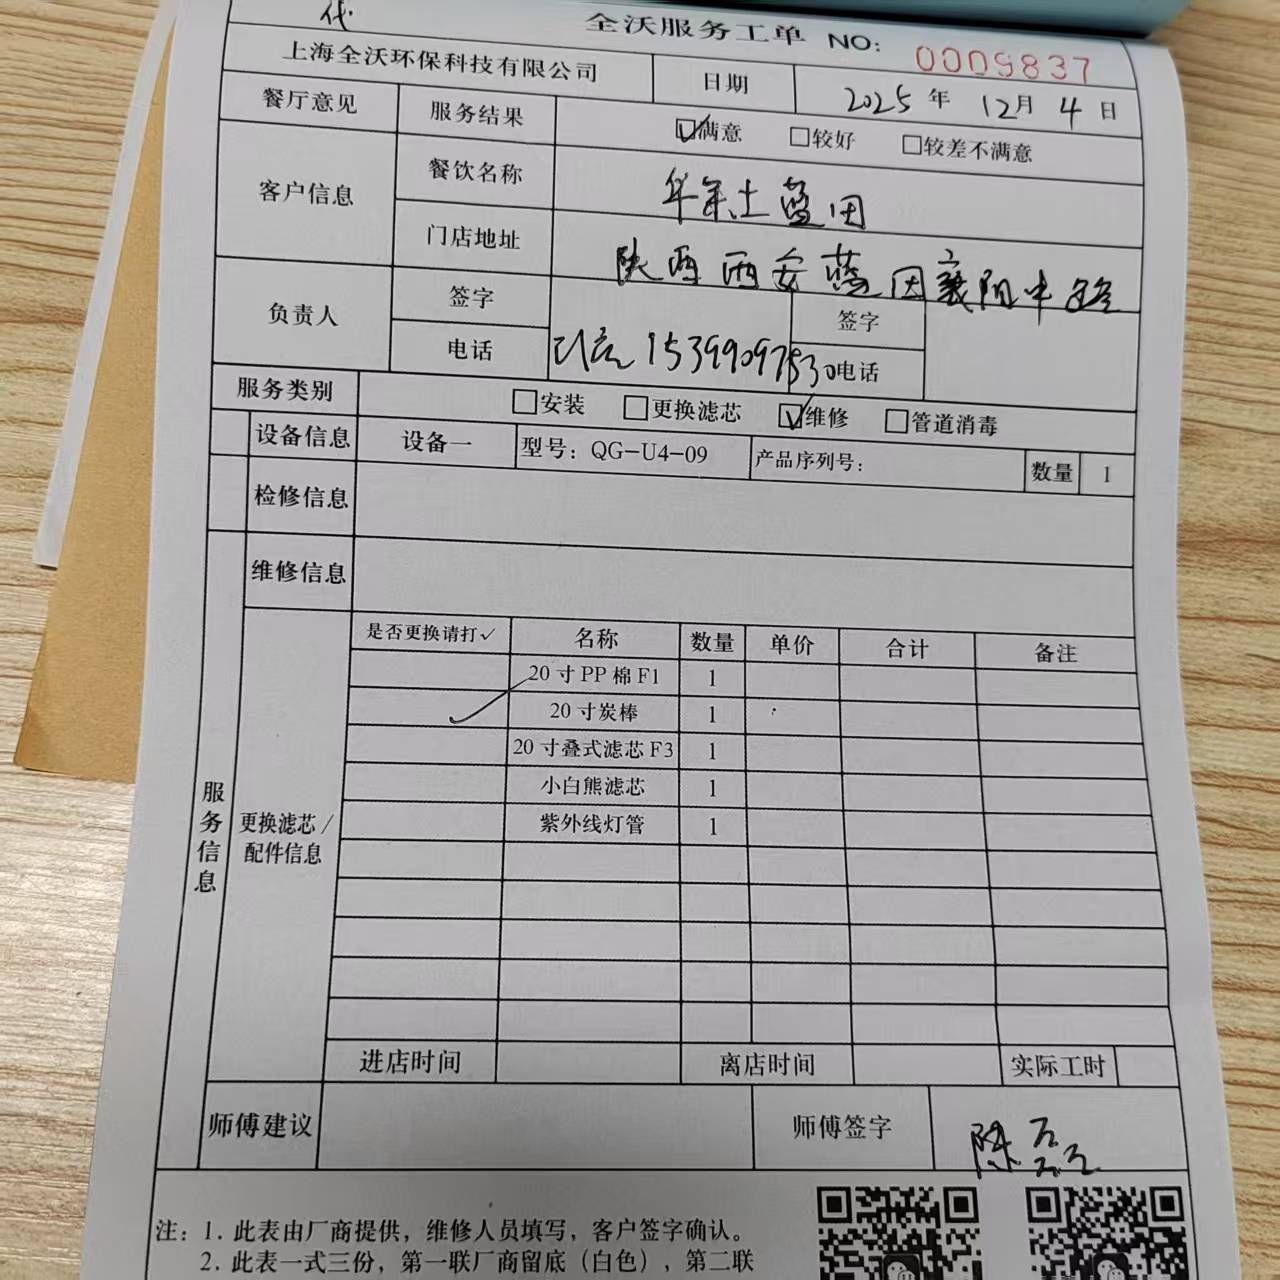 代
全沃服务工单 NO: 0009837
上海全沃环保科技有限公司 日期 2025 年 12月 4 日
餐厅意见 服务结果 ☑满意 □较好 □较差不满意
客户信息 餐饮名称 华莱士蓝田
门店地址 陕西西安蓝田襄阳中路
负责人 签字 签字
电话 15399097530 电话
服务类别 □安装 □更换滤芯 ☑维修 □管道消毒
设备信息 设备一 型号: QG-U4-09 产品序列号: 数量 1
检修信息
维修信息
服务信息
更换滤芯/配件信息
是否更换请打✓ 名称 数量 单价 合计 备注
20寸PP棉F1 1
✓ 20寸炭棒 1
20寸叠式滤芯F3 1
小白熊滤芯 1
紫外线灯管 1
进店时间 离店时间 实际工时
师傅建议 师傅签字 陈磊
注: 1. 此表由厂商提供，维修人员填写，客户签字确认。
2. 此表一式三份，第一联厂商留底（白色），第二联